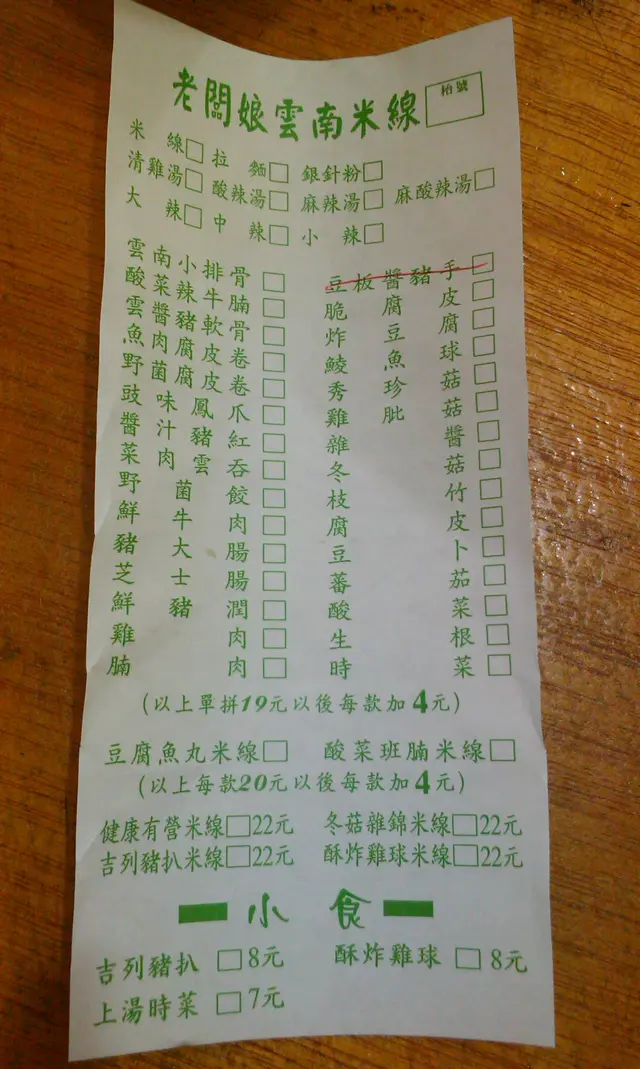 老闆娘雲南米線
枱號
米線□ 拉麵□ 銀針粉□
清雞湯□ 酸辣湯□ 麻辣湯□ 麻酸辣湯□
大辣□ 中辣□ 小辣□
雲南小排骨□ 豆板醬豬手□
酸菜辣牛腩□ 脆腐皮□
雲醬豬軟骨□ 炸豆腐□
魚肉腐皮卷□ 鯪魚球□
野菌腐皮卷□ 秀珍菇□
豉味鳳爪□ 雞肶菇□
醬汁豬紅□ 雜醬□
菜肉雲吞□ 冬菇□
野菌餃□ 枝竹□
鮮牛肉□ 腐皮□
豬大腸□ 豆卜□
芝士腸□ 蕃茄□
鮮豬潤□ 酸菜□
雞肉□ 生根□
腩肉□ 時菜□
(以上單拼19元以後每款加4元)
豆腐魚丸米線□ 酸菜班腩米線□
(以上每款20元以後每款加4元)
健康有營米線□22元 冬菇雜錦米線□22元
吉列豬扒米線□22元 酥炸雞球米線□22元
小食
吉列豬扒 □8元 酥炸雞球 □8元
上湯時菜 □7元